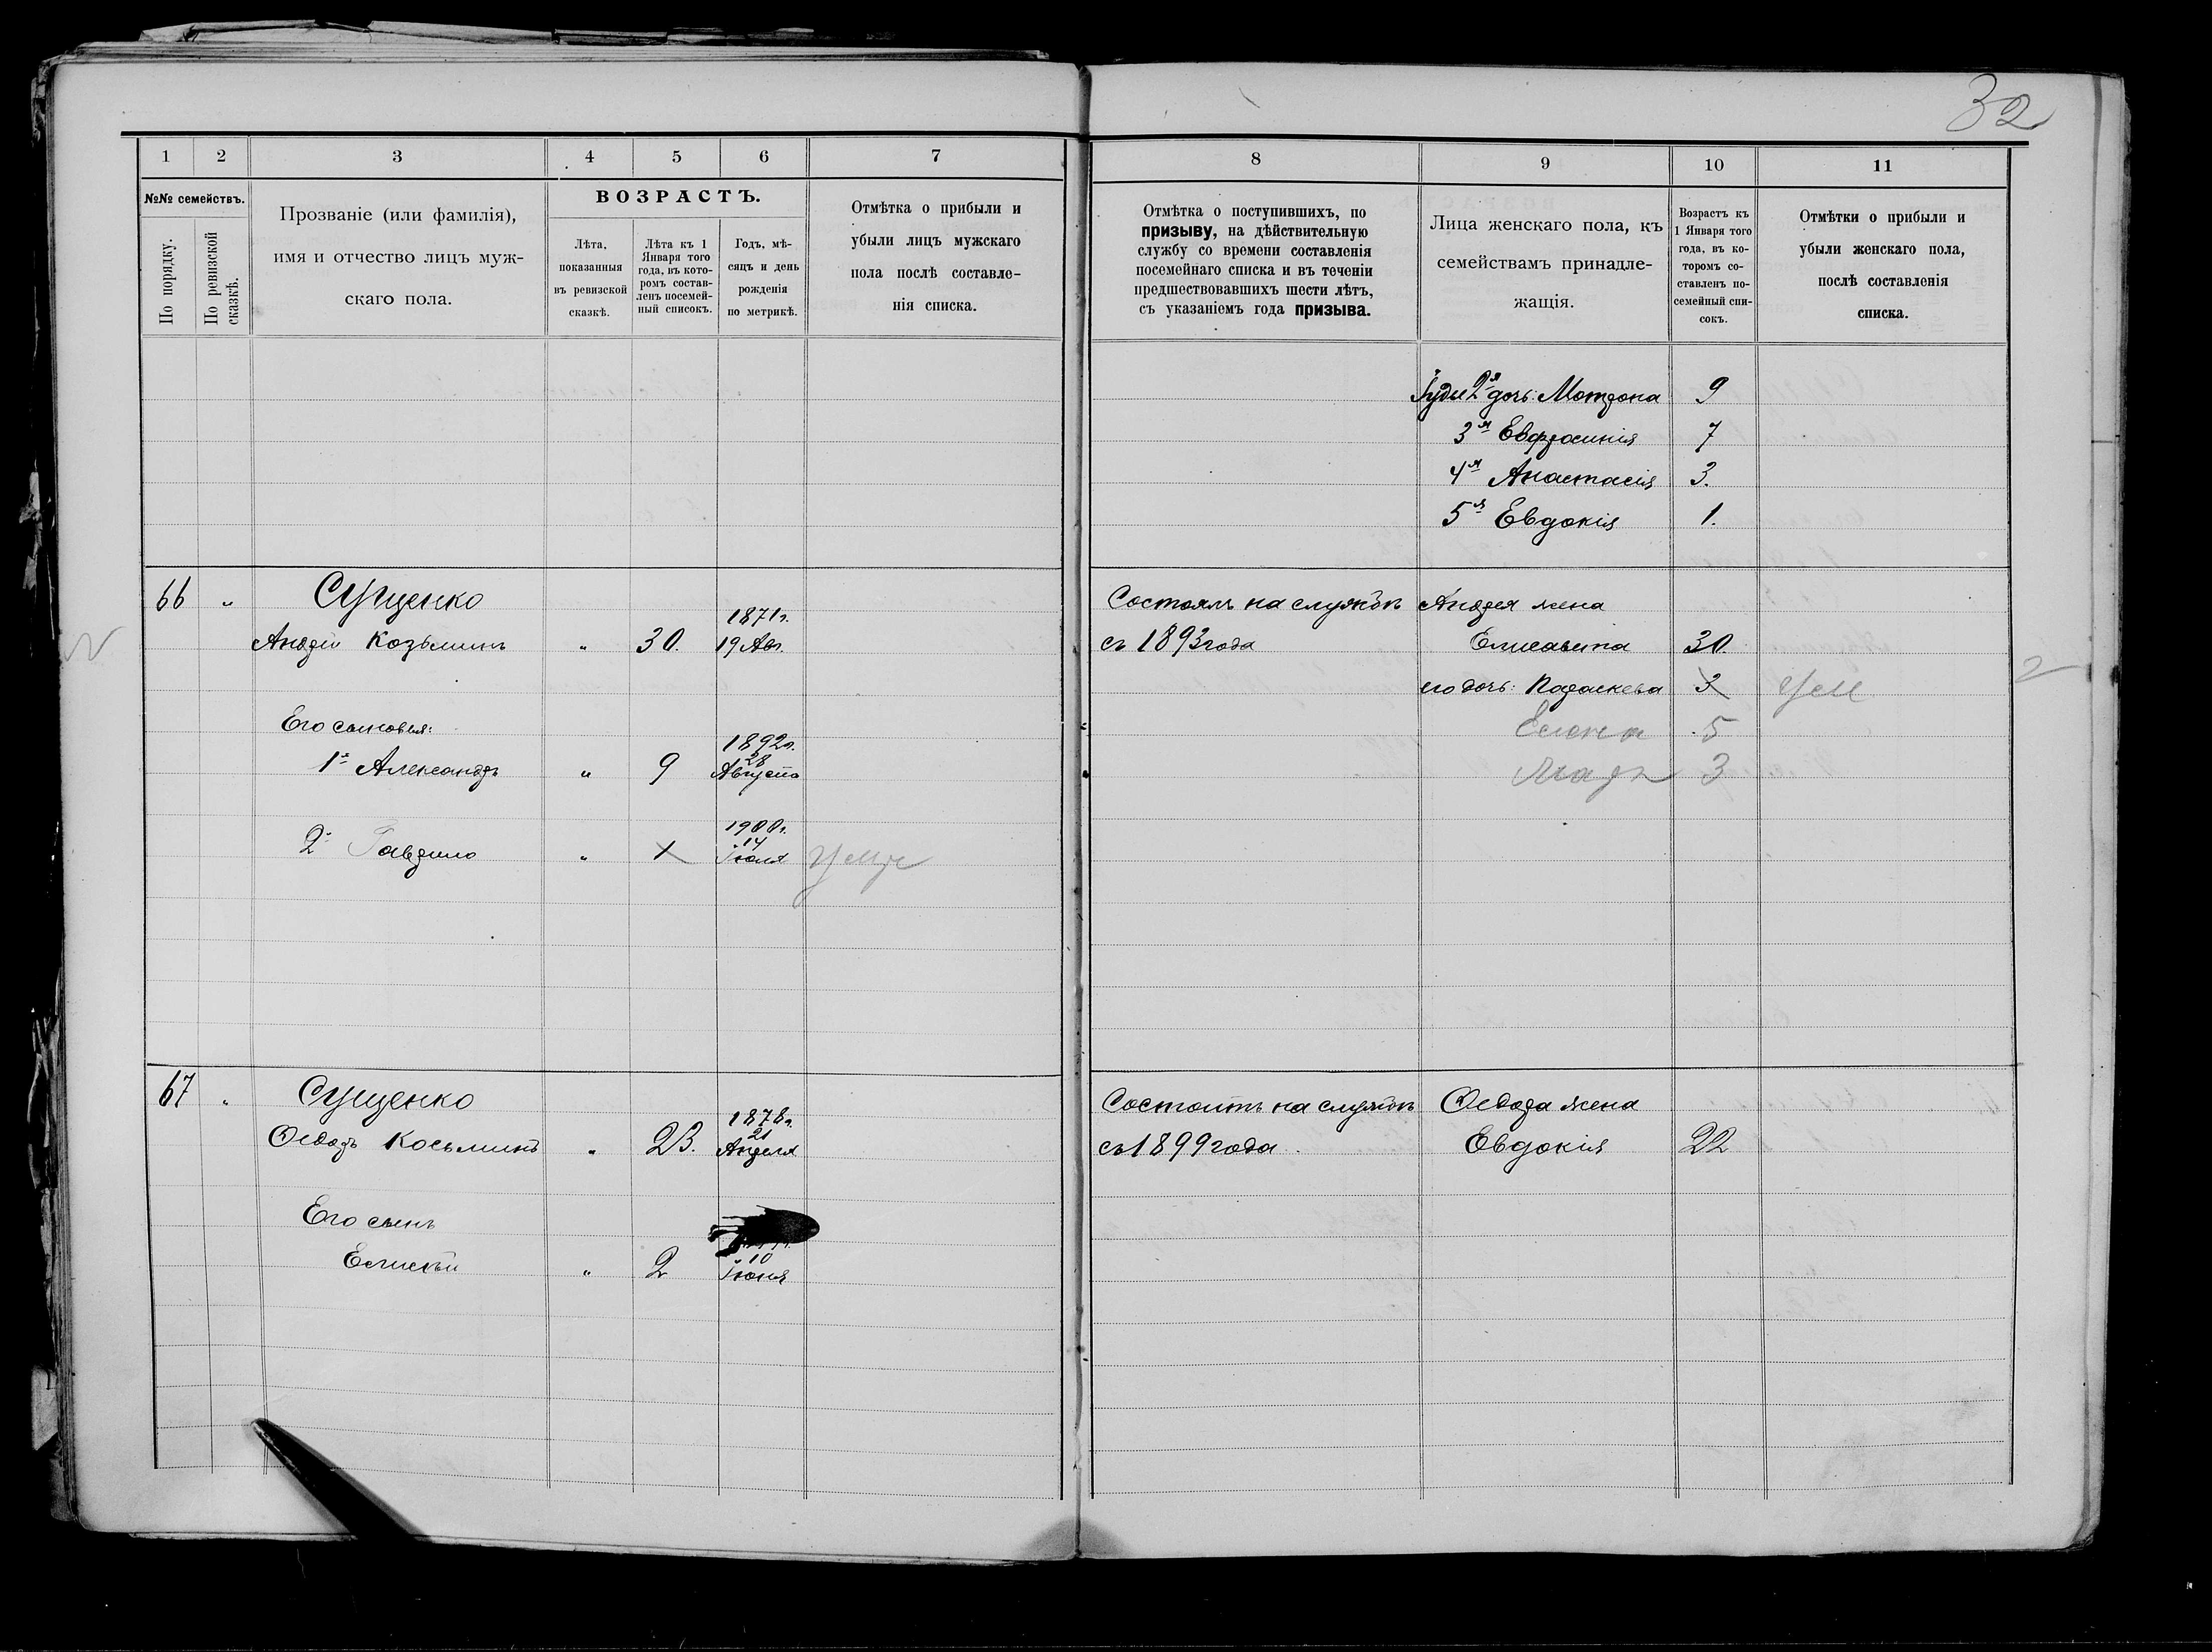 32
1 2 3 4 5 6 7
№№ семействъ.
По порядку.
По ревизской сказкѣ.
Прозваніе (или фамилія),
имя и отчество лицъ муж-
скаго пола.
ВОЗРАСТЪ.
Лѣта,
показанныя
въ ревизской
сказкѣ.
Лѣта къ 1
Января того
года, въ кото-
ромъ состав-
ленъ посемей-
ный списокъ.
Годъ, мѣ-
сяцъ и день
рожденія
по метрикѣ.
Отмѣтка о прибыли и
убыли лицъ мужскаго
пола послѣ составле-
нія списка.
66 " Сущенко
1871г.
Андрей Козьминъ " 30. 19 Авг.
Его сыновья:
1892г.
28
1й Александръ " 9 Августа
1900г.
14
2й Гавріило " 1 Іюля Умер
67 " Сущенко
1878г.
21
Ѳедоръ Косьминъ " 23. Апреля
Его сынъ
10
Елисей " 2 Іюня
8 9 10 11
Отмѣтка о поступившихъ, по
призыву, на дѣйствительную
службу со времени составленія
посемейнаго списка и въ теченіи
предшествовавшихъ шести лѣтъ,
съ указаніемъ года призыва.
Лица женскаго пола, къ
семействамъ принадле-
жащія.
Возрастъ къ
1 Января того
года, въ ко-
торомъ со-
ставленъ по-
семейный спи-
сокъ.
Отмѣтки о прибыли и
убыли женскаго пола,
послѣ составленія
списка.
Іуды 2я дочь: Матрона 9
3я Евфросинія 7
4я Анастасія 3.
5я Евдокія 1.
Состоялъ на службѣ Андрея жена
съ 1893 года Елисавета 30.
его дочь: Параскева 3 Ум
Елена 5
3
Состоитъ на службѣ Ѳедора жена
съ 1899 года Евдокія 22